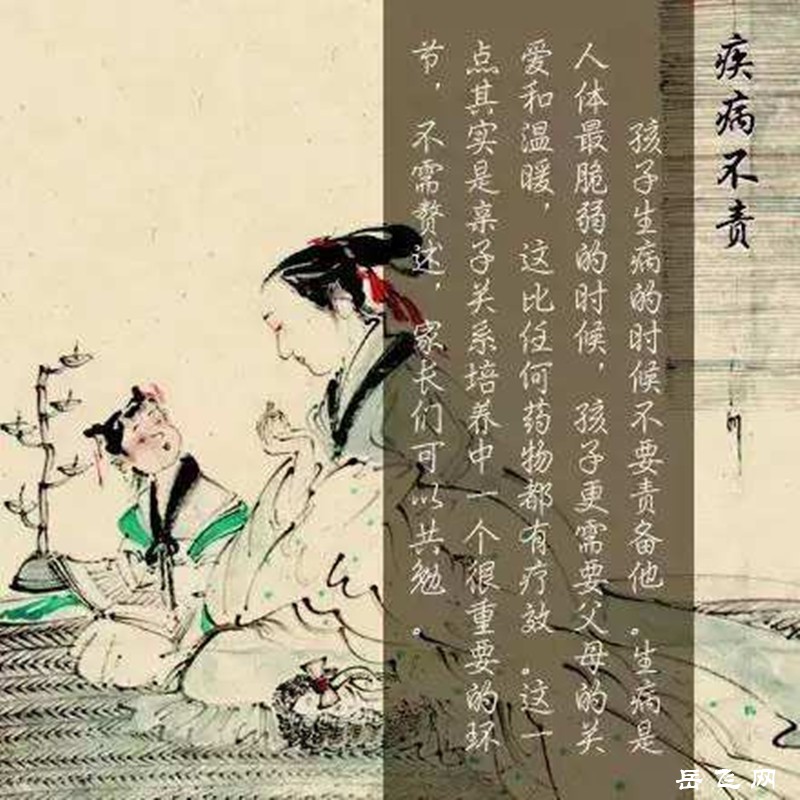 疾病不责
孩子生病的时候不要责备他。生病是
人体最脆弱的时候，孩子更需要父母的关
爱和温暖，这比任何药物都有疗效。这一
点其实是亲子关系培养中一个很重要的环
节，不需赘述，家长们可以共勉。
岳飞网